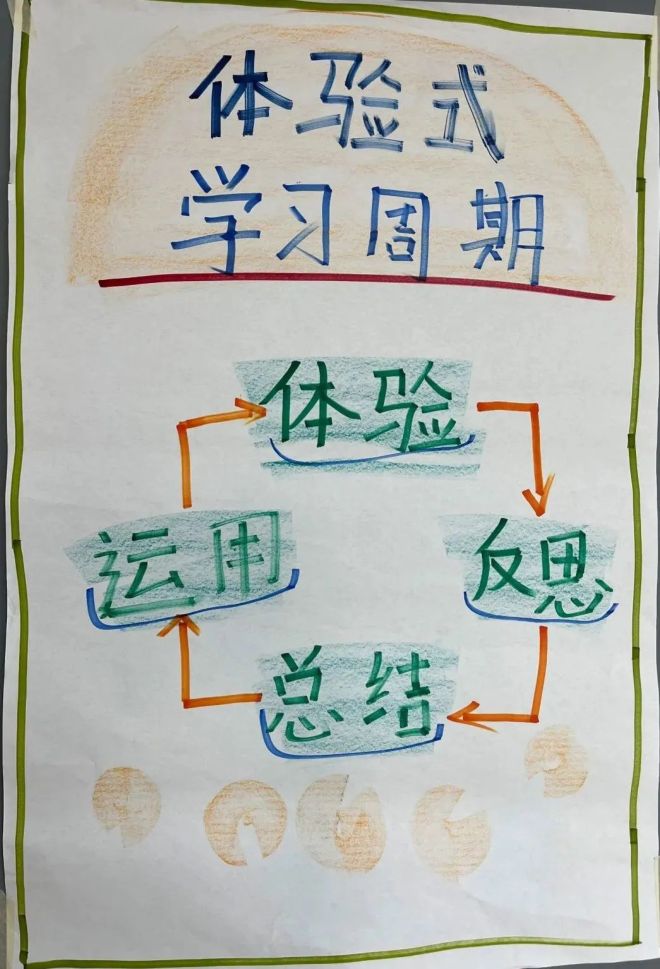 体验式
学习周期
体验
反思
总结
运用